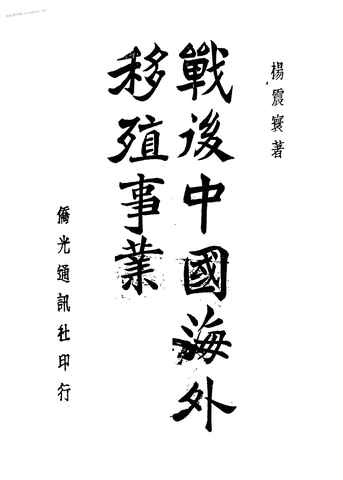 楊震寰著
戰後中國海外
移殖事業
僑光通訊社印行